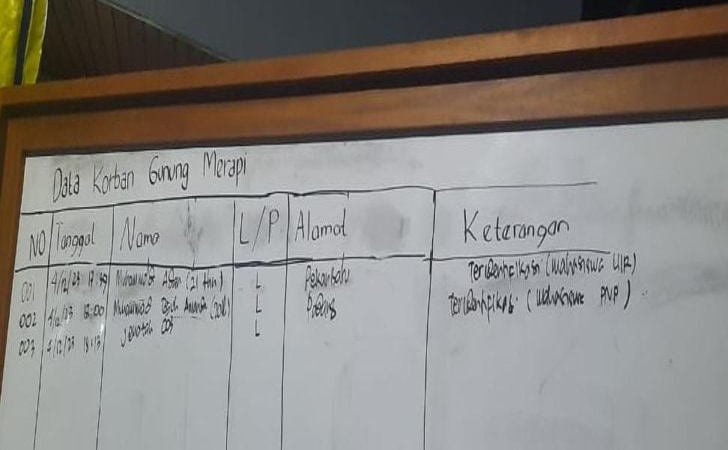 Data Korban Gunung Merapi
NO Tanggal Nama L/P Alamat Keterangan
001 4/12/23 Muhammad (21 thn) L Pekanbaru Teridentifikasi (Mahasiswa UIR)
002 4/12/23 18:00 Muhammad (20th) L Padang Teridentifikasi (Mahasiswa PNP)
003 4/12/23 18:13 Jenazah 003 L